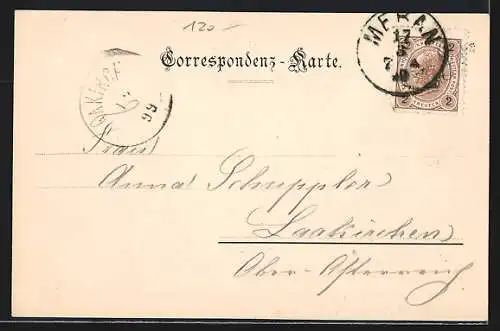 120.-
Correspondenz-Karte.
MERAN
17
2 2
99
Frau
Anna Schuppler
Laakirchen
Ober-Österreich